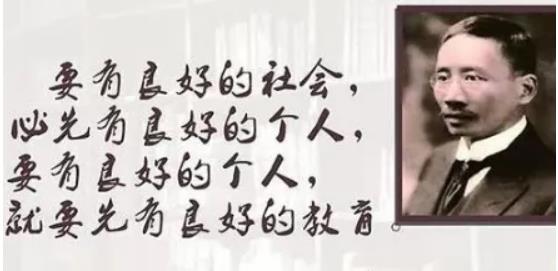 要有良好的社会，
必先有良好的个人，
要有良好的个人，
就要先有良好的教育。